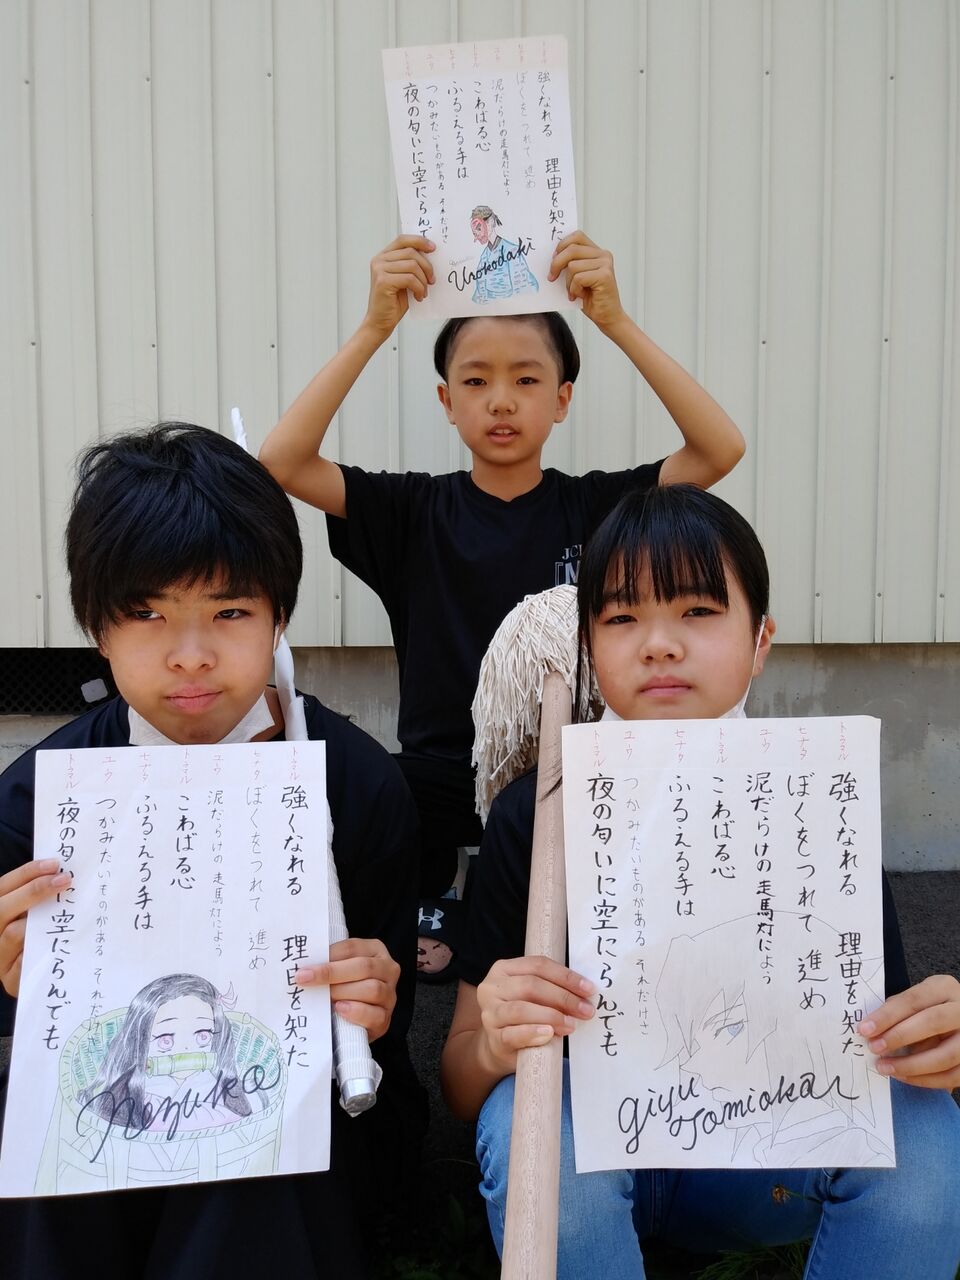 強くなれる 理由を知った
ぼくをつれて 進め
ユウ
泥だらけの走馬灯によう
こわばる心
ふるえる手は
ユウ
つかみたいものがある それだけさ
夜の匂いに空にらんで
Urokodaki
強くなれる 理由を知った
ぼくをつれて 進め
ユウ
泥だらけの走馬灯によう
こわばる心
ふるえる手は
ユウ
つかみたいものがある それだけさ
夜の匂いに空にらんでも
Nezuko
強くなれる 理由を知った
ぼくをつれて 進め
ユウ
泥だらけの走馬灯によう
こわばる心
ふるえる手は
ユウ
つかみたいものがある それだけさ
夜の匂いに空にらんでも
giyu
Tomioka